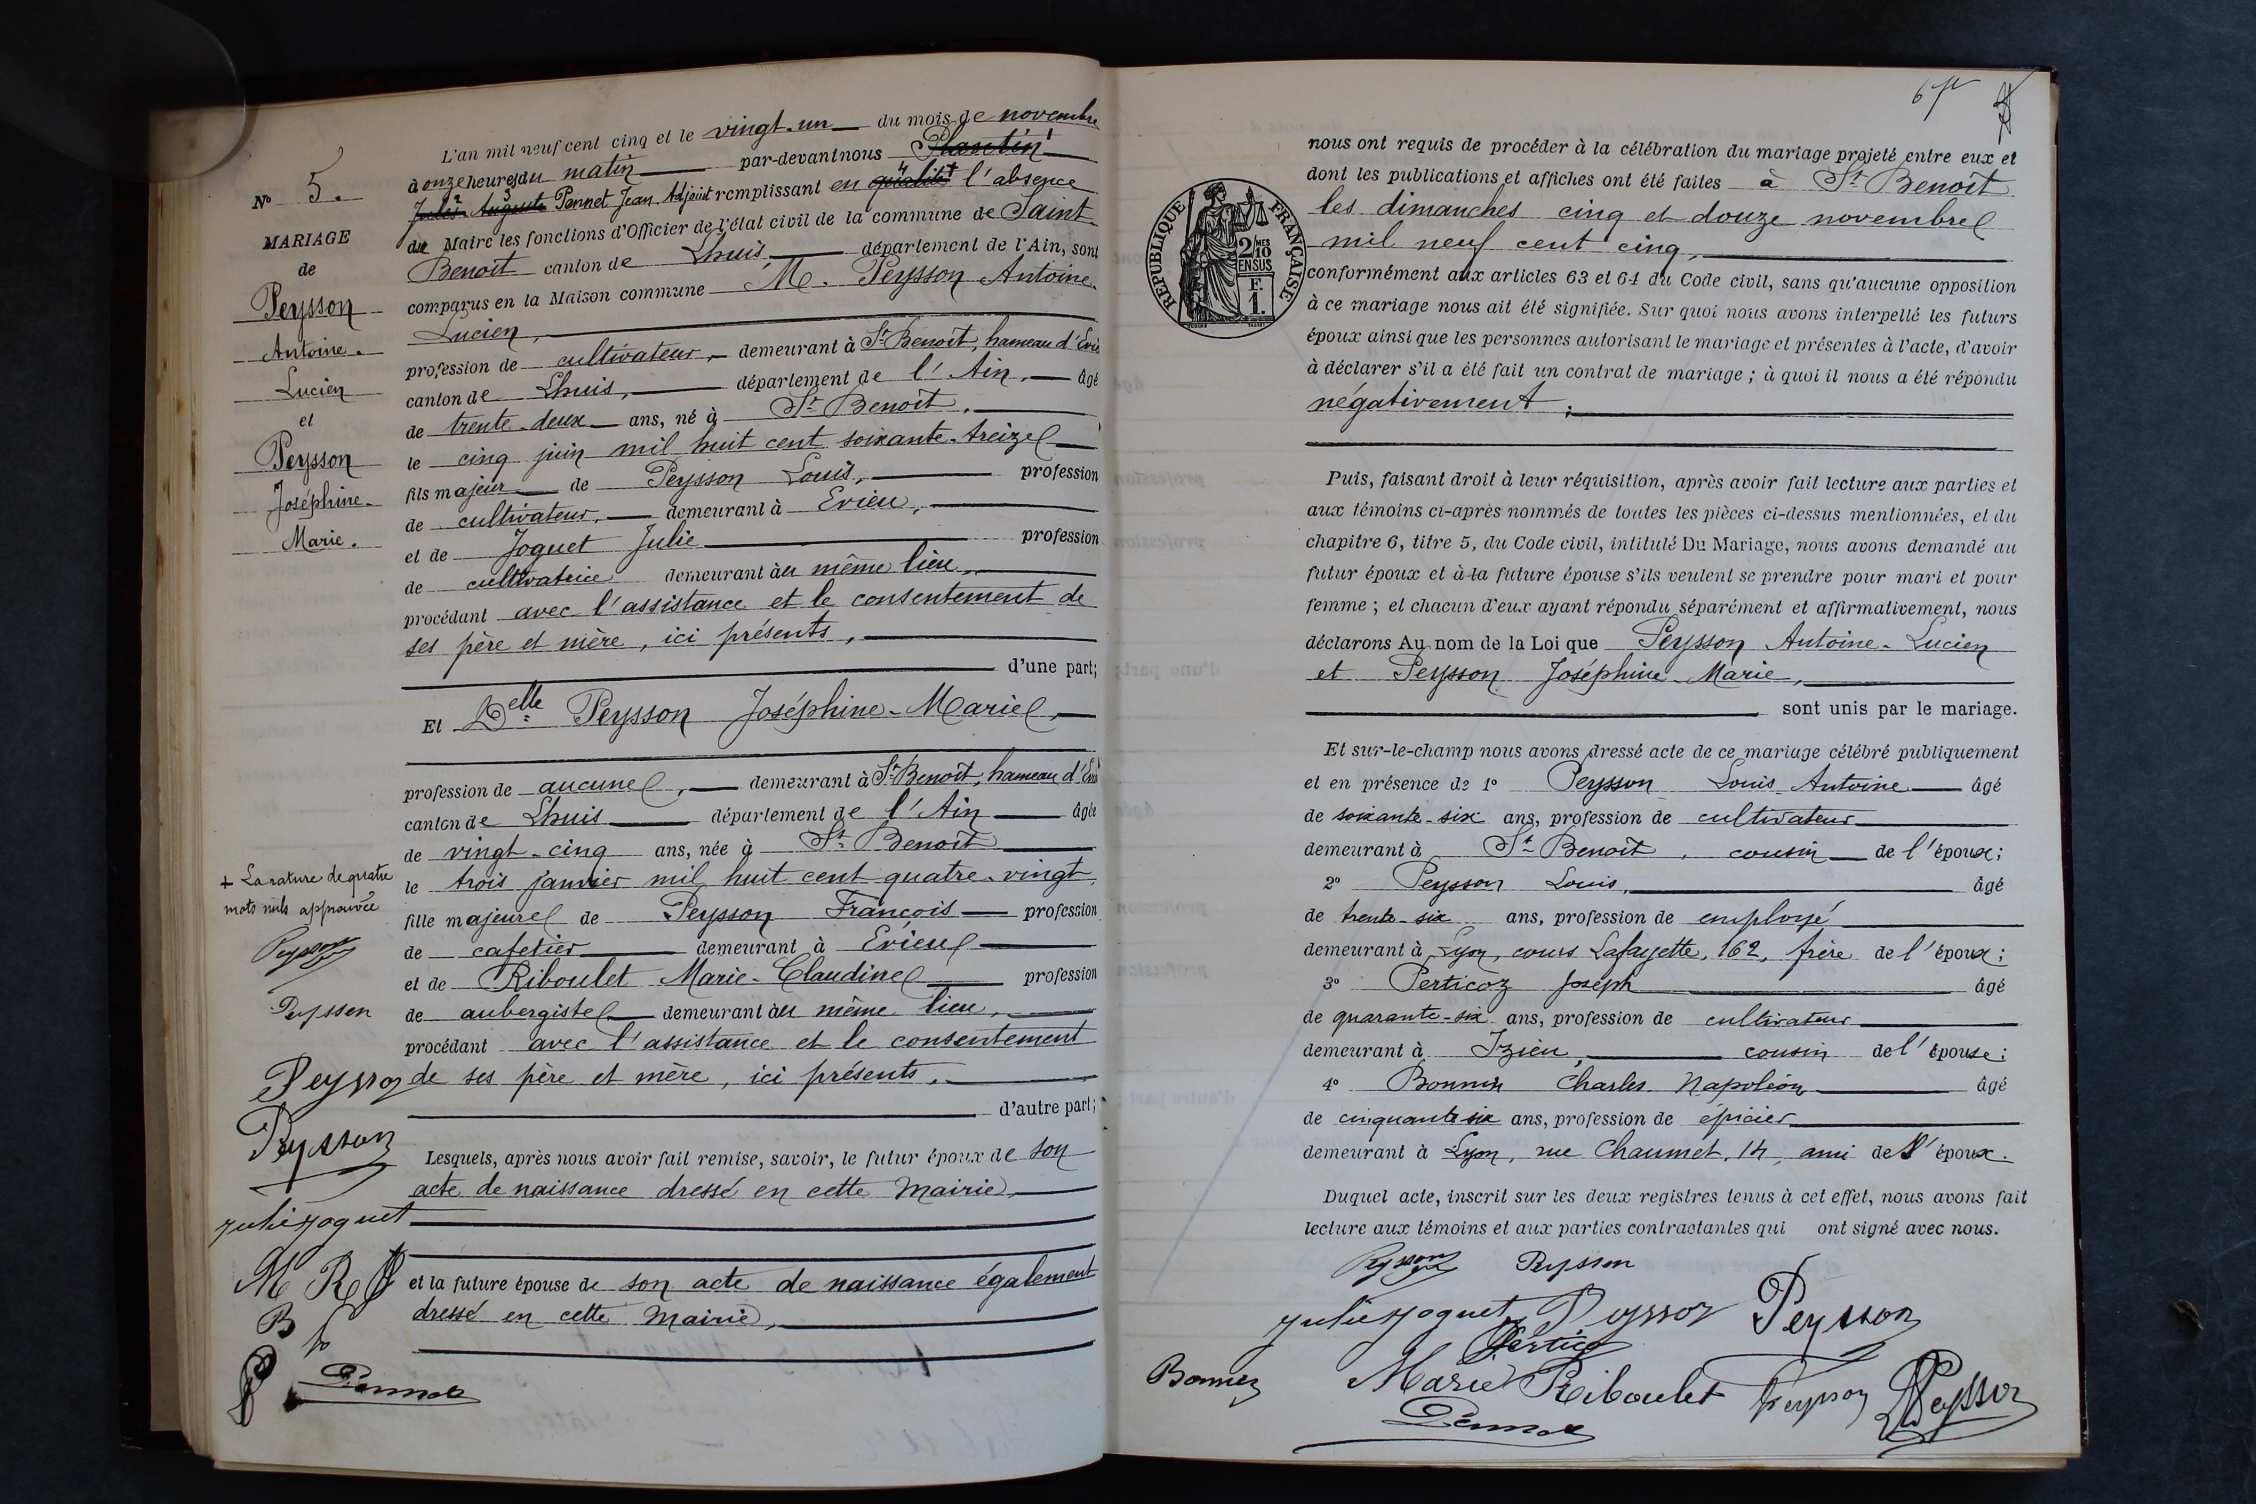 N° 5.
MARIAGE
de
Peysson
Antoine-
Lucien
et
Peysson
Joséphine-
Marie.
+ La rature de quatre
mots nuls approuvée
Peysson
Peysson
Peysson
Peysson
Julie Joguet
M R
B
Pennet
L'an mil neuf cent cinq et le vingt-un du mois de novembre
à onze heures du matin par-devant nous Plantin
Jules Auguste Pennet Jean Adjoint remplissant en qualité l'absence
du Maire les fonctions d'Officier de l'état civil de la commune de Saint
Benoît canton de Lhuis, département de l'Ain, sont
comparus en la Maison commune M. Peysson Antoine-
Lucien,
profession de cultivateur, demeurant à St Benoît, hameau d'Evieu
canton de Lhuis, département de l'Ain, âgé
de trente-deux ans, né à St Benoît,
le cinq juin mil huit cent soixante-treize
fils majeur de Peysson Louis, profession
de cultivateur, demeurant à Evieu,
et de Joguet Julie profession
de cultivatrice demeurant au même lieu,
procédant avec l'assistance et le consentement de
ses père et mère, ici présents,
d'une part;
Et Delle Peysson Joséphine-Marie,
profession de aucune, demeurant à St Benoît, hameau d'Evieu
canton de Lhuis département de l'Ain âgée
de vingt-cinq ans, née à St Benoît
le trois janvier mil huit cent quatre-vingt,
fille majeure de Peysson François profession
de cafetier demeurant à Evieu
et de Riboulet Marie-Claudine profession
de aubergiste demeurant au même lieu,
procédant avec l'assistance et le consentement
de ses père et mère, ici présents,
d'autre part;
Lesquels, après nous avoir fait remise, savoir, le futur époux de son
acte de naissance dressé en cette Mairie,
et la future épouse de son acte de naissance également
dressé en cette Mairie,
RÉPUBLIQUE FRANÇAISE
2 MES
10
EN SUS
F.
1.
nous ont requis de procéder à la célébration du mariage projeté entre eux et
dont les publications et affiches ont été faites à St Benoît
les dimanches cinq et douze novembre
mil neuf cent cinq,
conformément aux articles 63 et 64 du Code civil, sans qu'aucune opposition
à ce mariage nous ait été signifiée. Sur quoi nous avons interpellé les futurs
époux ainsi que les personnes autorisant le mariage et présentes à l'acte, d'avoir
à déclarer s'il a été fait un contrat de mariage; à quoi il nous a été répondu
négativement;
Puis, faisant droit à leur réquisition, après avoir fait lecture aux parties et
aux témoins ci-après nommés de toutes les pièces ci-dessus mentionnées, et du
chapitre 6, titre 5, du Code civil, intitulé Du Mariage, nous avons demandé au
futur époux et à la future épouse s'ils veulent se prendre pour mari et pour
femme; et chacun d'eux ayant répondu séparément et affirmativement, nous
déclarons Au nom de la Loi que Peysson Antoine-Lucien
et Peysson Joséphine-Marie,
sont unis par le mariage.
Et sur-le-champ nous avons dressé acte de ce mariage célébré publiquement
et en présence de 1° Peysson Louis Antoine âgé
de soixante-six ans, profession de cultivateur
demeurant à St Benoît, cousin de l'époux;
2° Peysson Louis, âgé
de trente-six ans, profession de employé
demeurant à Lyon, cours Lafayette, 162, frère de l'époux;
3° Perticoz Joseph âgé
de quarante-six ans, profession de cultivateur
demeurant à Izieu, cousin de l'épouse;
4° Bonnin Charles Napoléon âgé
de cinquante-six ans, profession de épicier
demeurant à Lyon, rue Chaumet, 14, ami de l'époux.
Duquel acte, inscrit sur les deux registres tenus à cet effet, nous avons fait
lecture aux témoins et aux parties contractantes qui ont signé avec nous.
Peysson Peysson
Julie Joguet Peysson Peysson
Perticoz
Marie Riboulet Peysson Peysson
Pennet